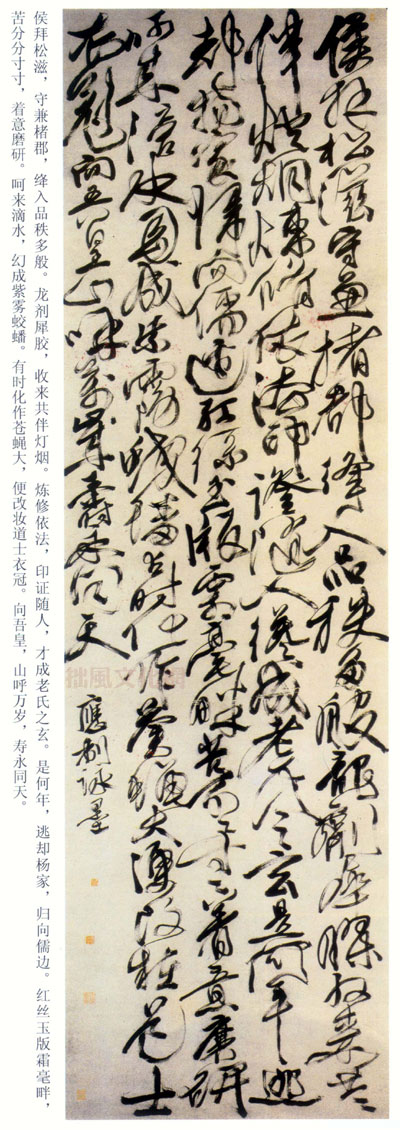 侯拜松滋守兼楮郡絳入品秩多般龍劑犀膠收來共
伴燈烟煉修依法印證隨人纔成老氏之玄是何年逃
却楊家歸向儒邊紅絲玉版霜毫畔苦分分寸寸着意磨研
呵來滴水幻成紫霧蛟蟠有時化作蒼蠅大便改粧道士
衣冠向吾皇山呼萬歲壽永同天
應制詠墨
拙風文化網
侯拜松滋，守兼楮郡，绛入品秩多般。龙剂犀胶，收来共伴灯烟。炼修依法，印证随人，才成老氏之玄。是何年，逃却杨家，归向儒边。红丝玉版霜毫畔，
苦分分寸寸，着意磨研。呵来滴水，幻成紫雾蛟蟠。有时化作苍蝇大，便改妆道士衣冠。向吾皇，山呼万岁，寿永同天。